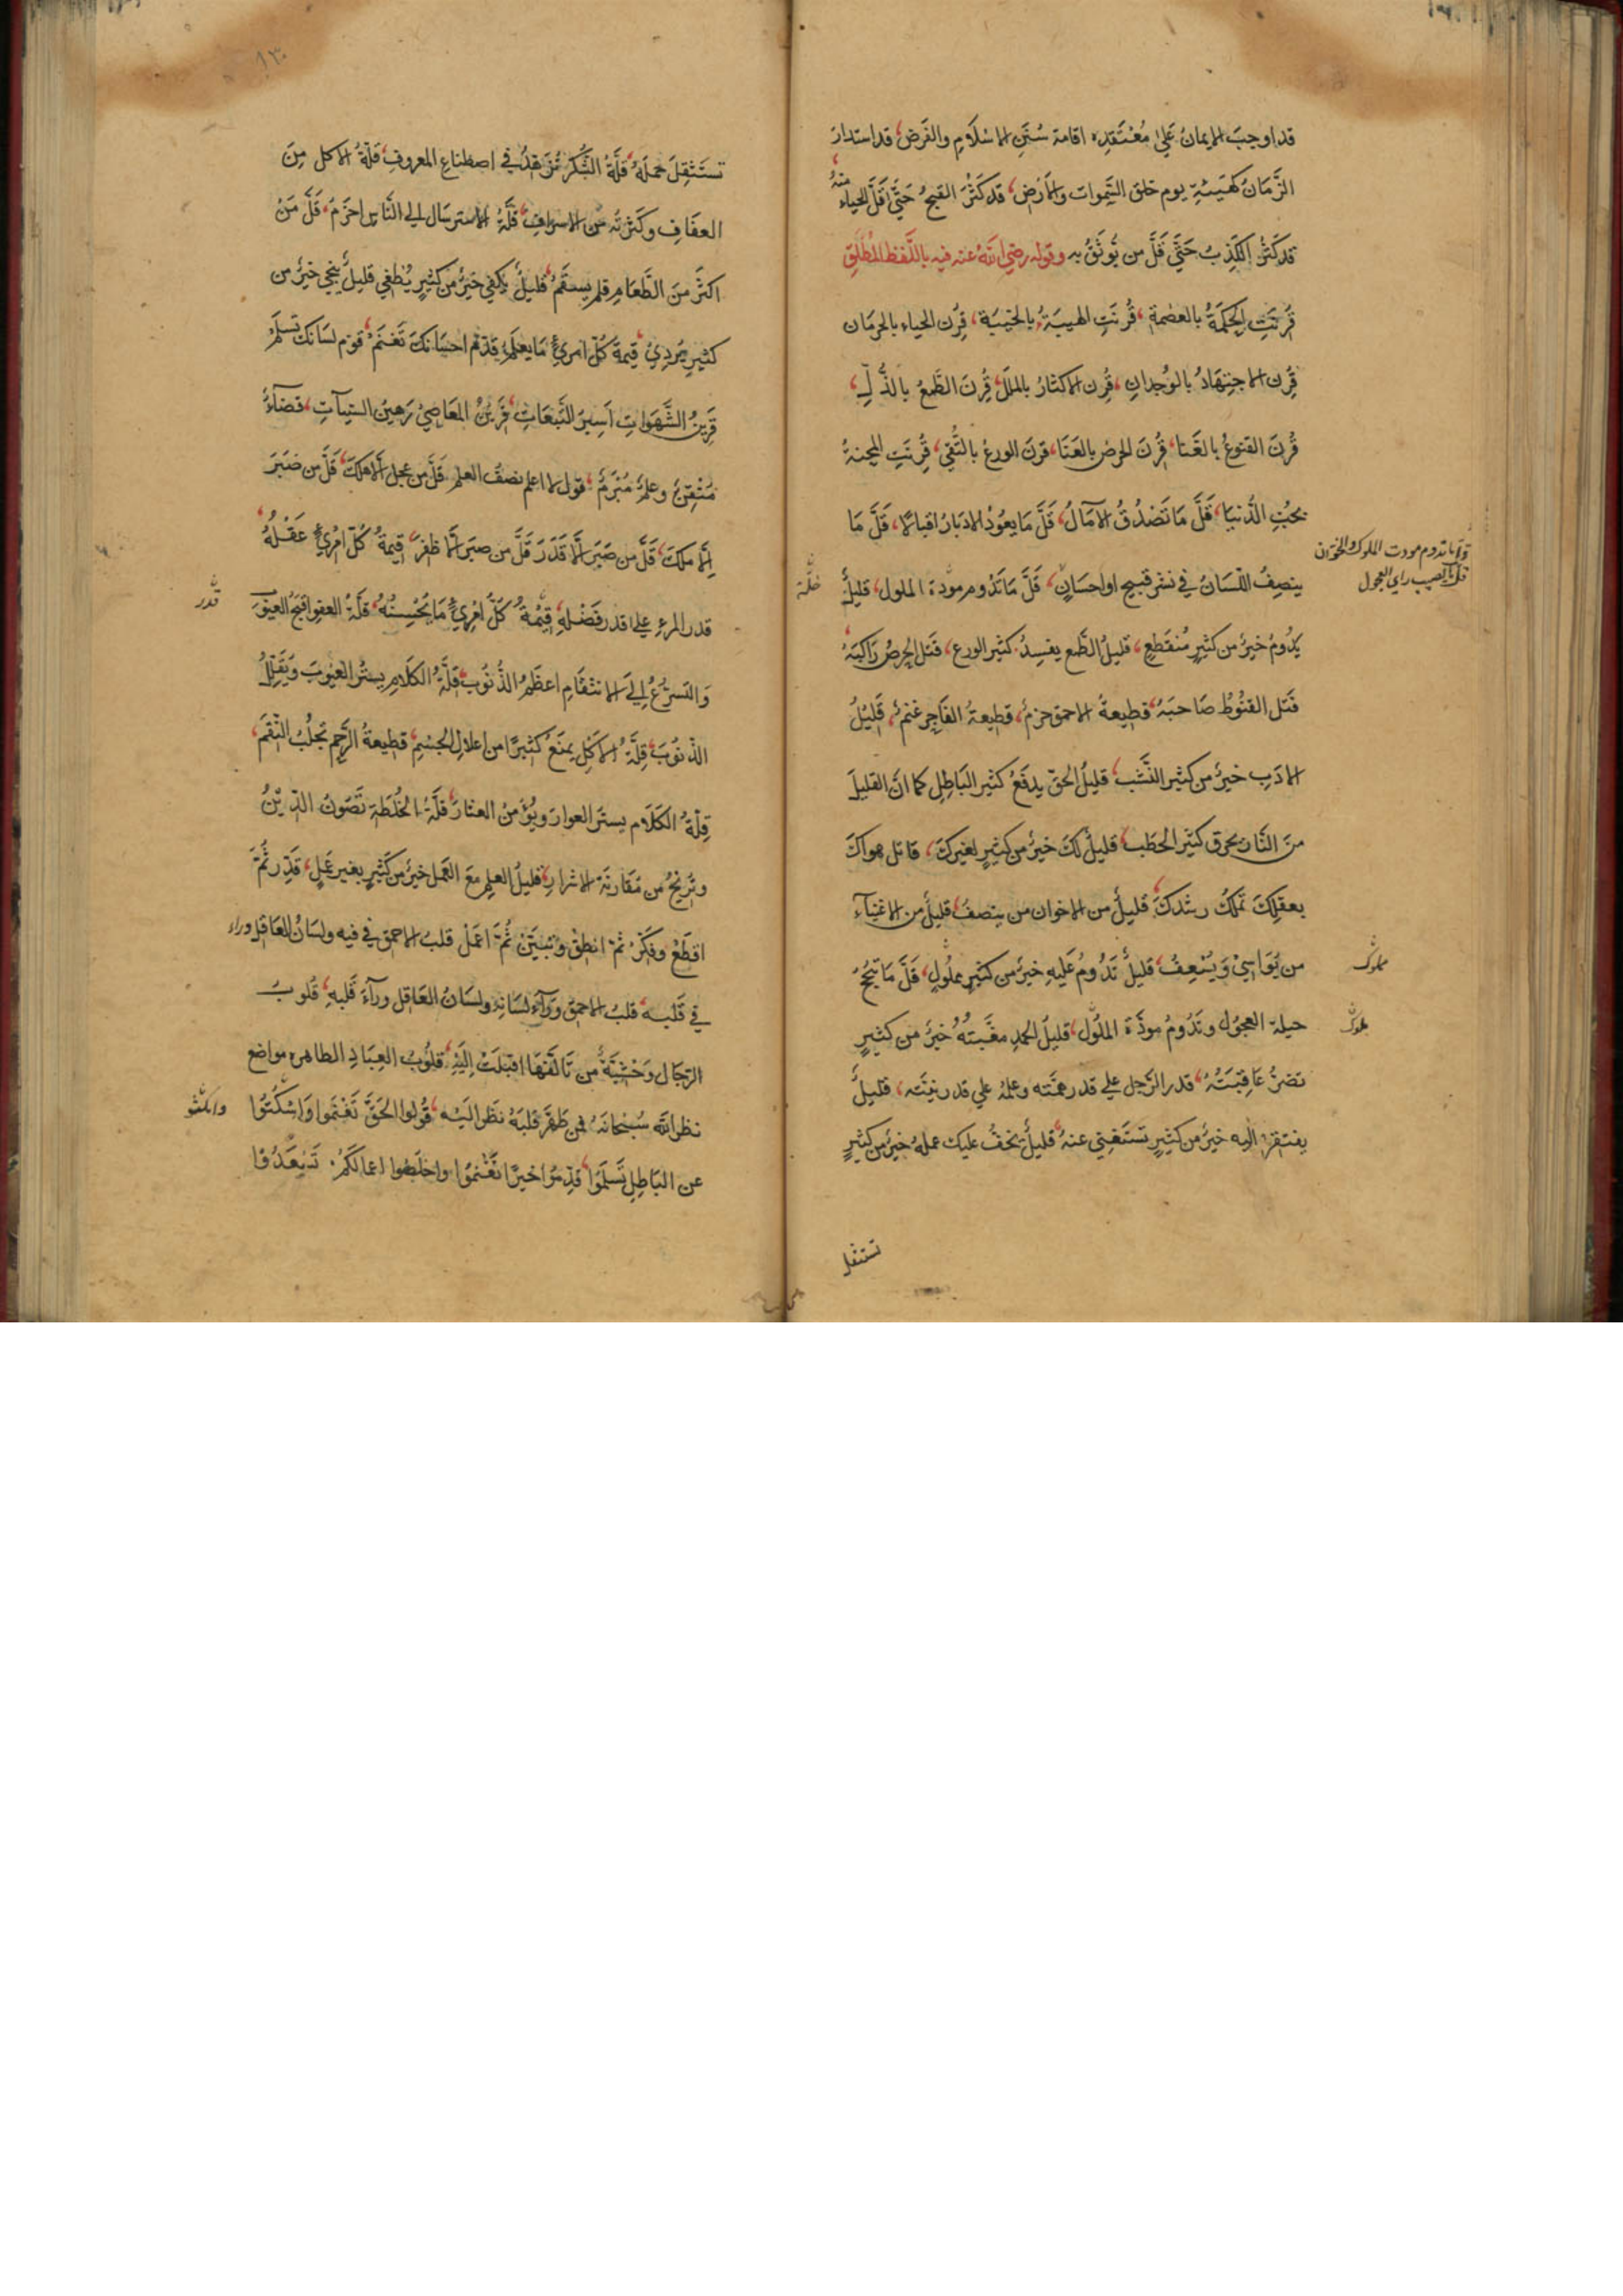 قد اوجب الايمان علي معتقده اقامة سنن الاسلام والفرض، قد استدار
الزمان كهيئته يوم خلق السموات والارض، قد كثر القبيح حتي قل الحياء منه،
قد كثر الكذب حتي قل من يوثق به وقوله رضي الله عنه فيه باللفظ المطلق
قرنت الحكمة بالعصمة، قرنت الهيبة بالخيبة، قرن الحياء بالحرمان
قرن الاجتهاد بالوجدان، قرن الاكثار بالملل، قرن الطمع بالذل،
قرن القنوع بالغنا، قرن الحرص بالعنا، قرن الورع بالتقي، قرنت المحنة
بحب الدنيا، قل ما تصدق الآمال، قل ما يعود الادبار اقبالا، قل ما
ينصف اللسان في نشر قبيح او احسان، قل ما تدوم مودة الملول، قليل
خلة
قل ما تدوم مودت الملوك والخوان
قل ما يصيب راي العجول
يدوم خير من كثير منقطع، قليل الطمع يفسد كثير الورع، قتل الحرص راكبه،
قتل القنوط صاحبه، قطيعة الاحمق حزم، قطيعة الفاجر غنم، قليل
الادب خير من كثير النشب، قليل الحق يدفع كثير الباطل كما ان القليل
من النار يحرق كثير الحطب، قليل لك خير من كثير لغيرك، قاتل هواك
بعقلك تملك رشدك، قليل من الاخوان من ينصف، قليل من الاغنياء
من يواسي ويسعف، قليل تدوم عليه خير من كثير مملول، قل ما تنجح
مملوك
حيلة العجول وتدوم مودة الملول، قليل الحمد مغبته خير من كثير
ملوك
تضر عاقبته، قدر الرجل علي قدر همته وعمله علي قدر نيته، قليل
يفتقر اليه خير من كثير تستغني عنه، قليل يخف عليك عمله خير من كثير
تستثقل
١٣٠
تستثقل حمله، قلة الشكر تزهد في اصطناع المعروف، قلة الاكل من
العفاف وكثرته من الاسراف، قلة الاسترسال الي الناس احزم، قل من
اكثر من الطعام فلم يسقم، قليل يكفي خير من كثير يطغي قليل ينجي خير من
كثير يردي، قيمة كل امرئ ما يعلم، قدم احسانك تغنم، قوم لسانك تسلم
قرين الشهوات اسير التبعات، قرين المعاصي رهين السيئات، قضاء
متقن وعلم مبرم، قول لا اعلم نصف العلم، قل من عجل الا هلك، قل من صبر
الا ملك، قل من صبر الا قدر قل من صبر الا ظفر، قيمة كل امرئ عقله،
قدر المرء علي قدر فضله، قيمة كل امرئ ما يحسنه، قلة العفو اقبح العيوب
قدر
والتسرع الي الانتقام اعظم الذنوب، قلة الكلام يستر العيوب ويقلل
الذنوب، قلة الاكل يمنع كثيرا من اعلال الجسم، قطيعة الرحم تجلب النقم،
قلة الكلام يستر العوار ويؤمن العثار، قلة الخلطة تصون الدين
وتريح من مقارنة الاشرار، قليل العلم مع العمل خير من كثير بغير عمل، قدر ثم
اقطع وفكر ثم انطق وتبين ثم اعمل قلب الاحمق في فيه ولسان العاقل وراء
في قلبه، قلب الاحمق وراء لسانه ولسان العاقل وراء قلبه، قلوب
الرجال وحشية من تالفها اقبلت اليه، قلوب العباد الطاهرة مواضع
نظر الله سبحانه فمن طهر قلبه نظر اليه، قولوا الحق تغنموا واسكتوا
واسكتو
عن الباطل تسلموا، قدموا خيرا تغنموا واخلصوا اعمالكم تسعدوا